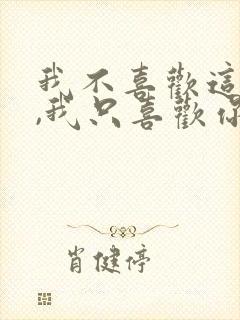 我不喜歡這
,我只喜歡你
肖健停